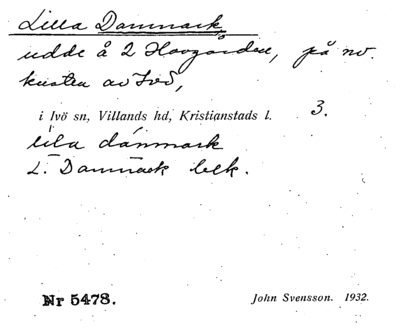 Lilla Danmark,
udde å 2 Havgården, på nv.
kusten av Ivö,
i Ivö sn, Villands hd, Kristianstads l. 3.
lila dánmark
L. Danmark bek.
Nr 5478.
John Svensson. 1932.